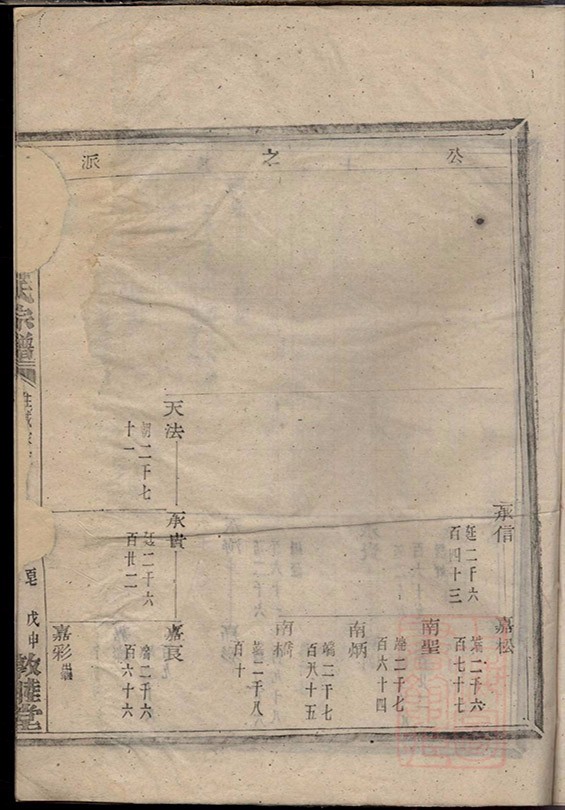 公之派
承信
廷二千六
百四十三
嘉松
端二千六
百七十七
南聖
端二千七
百六十四
南炳
端二千七
百八十五
南橋
端二千八
百十
天法
朝二千七
十一
承貴
廷二千六
百廿二
嘉良
端二千六
百六十六
嘉彩
氏宗譜
戊申
敦睦堂